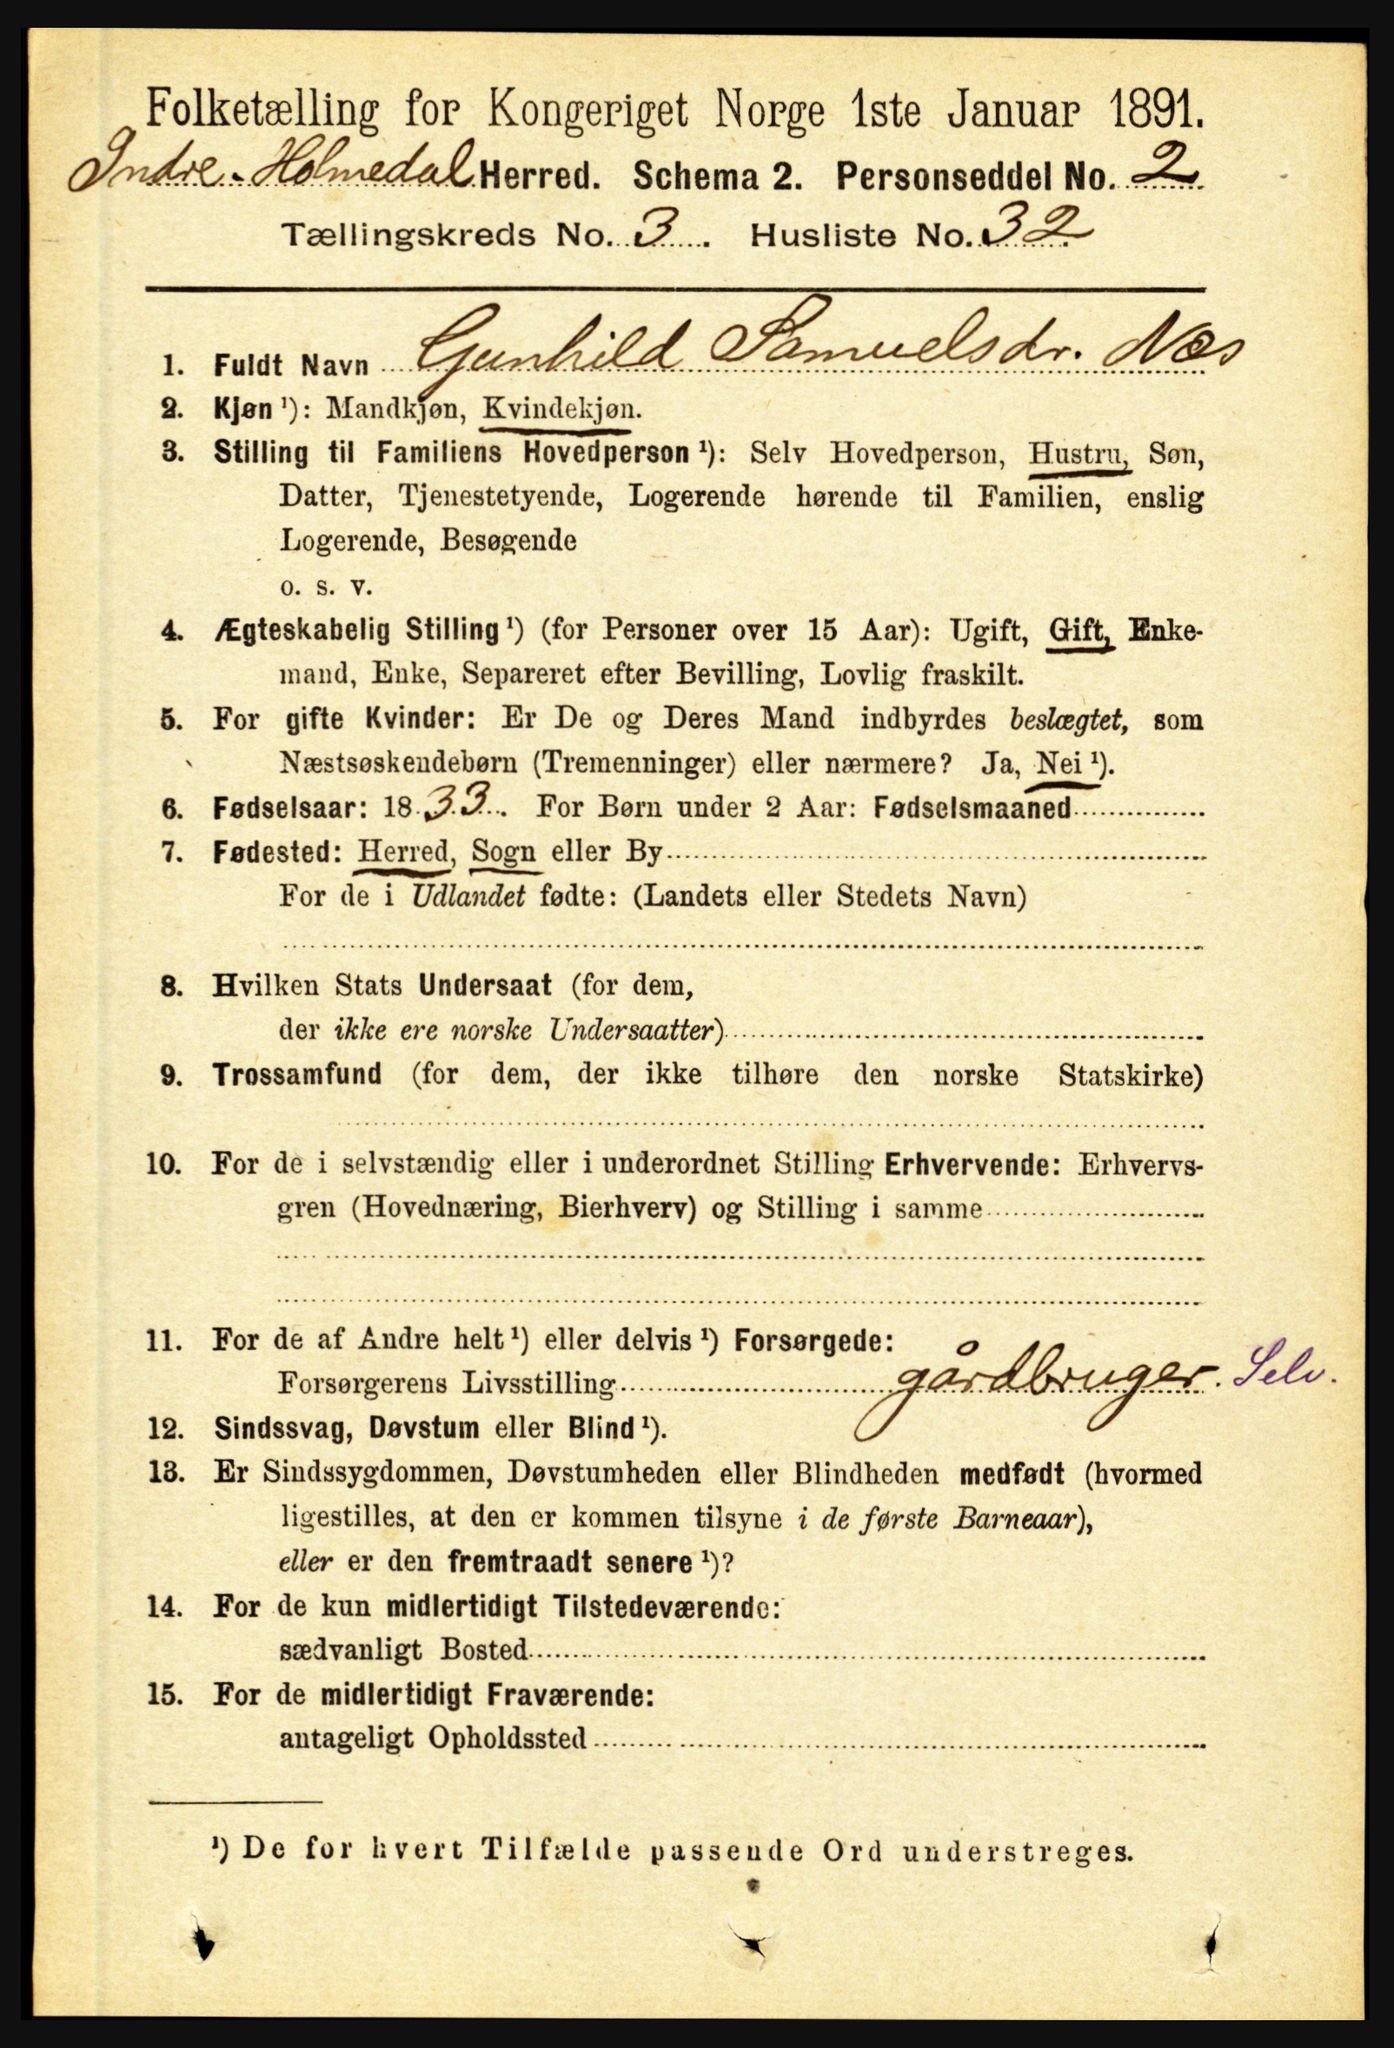 Folketælling for Kongeriget Norge 1ste Januar 1891.
Indre-Holmedal Herred. Schema 2. Personseddel No. 2
Tællingskreds No. 3. Husliste No. 32.
1. Fuldt Navn Gunhild Samuelsdr. Næs
2. Kjøn ¹): Mandkjøn, Kvindekjøn.
3. Stilling til Familiens Hovedperson ¹): Selv Hovedperson, Hustru, Søn,
Datter, Tjenestetyende, Logerende hørende til Familien, enslig
Logerende, Besøgende
o. s. v.
4. Ægteskabelig Stilling ¹) (for Personer over 15 Aar): Ugift, Gift, Enke-
mand, Enke, Separeret efter Bevilling, Lovlig fraskilt.
5. For gifte Kvinder: Er De og Deres Mand indbyrdes beslægtet, som
Næstsøskendebørn (Tremenninger) eller nærmere? Ja, Nei ¹).
6. Fødselsaar: 1833. For Børn under 2 Aar: Fødselsmaaned
7. Fødested: Herred, Sogn eller By
For de i Udlandet fødte: (Landets eller Stedets Navn)
8. Hvilken Stats Undersaat (for dem,
der ikke ere norske Undersaatter)
9. Trossamfund (for dem, der ikke tilhøre den norske Statskirke)
10. For de i selvstændig eller i underordnet Stilling Erhvervende: Erhvervs-
gren (Hovednæring, Bierhverv) og Stilling i samme
11. For de af Andre helt ¹) eller delvis ¹) Forsørgede:
Forsørgerens Livsstilling gårdbruger. Selv.
12. Sindssvag, Døvstum eller Blind ¹).
13. Er Sindssygdommen, Døvstumheden eller Blindheden medfødt (hvormed
ligestilles, at den er kommen tilsyne i de første Barneaar),
eller er den fremtraadt senere ¹)?
14. For de kun midlertidigt Tilstedeværende:
sædvanligt Bosted
15. For de midlertidigt Fraværende:
antageligt Opholdssted
¹) De for hvert Tilfælde passende Ord understreges.